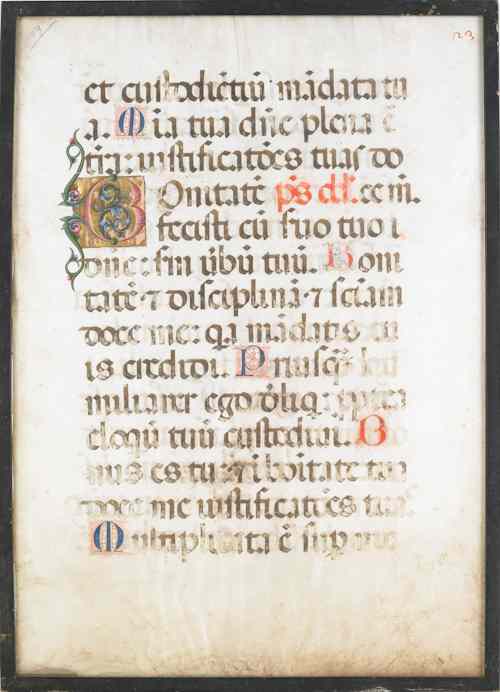 23
et custodiētiū mādata tu
a. Mia tua dñe plena ē
t̄ra: iustificatōes tuas do
Bonitatē p̄s cħf. ce m̄.
fecisti cū suo tuo
dñe: s̄m ūbū tuū. Boni
tatē ⁊ disciplinā ⁊ sciām
doce me: qa mādatis tu
is credidi. Priusq̄
miliarer ego dēliq:
eloqū tuū custodiui. B
nus es tu: ⁊ i bōitate tua
doce me iustificatōes tuas.
Multiplicata ē sup me